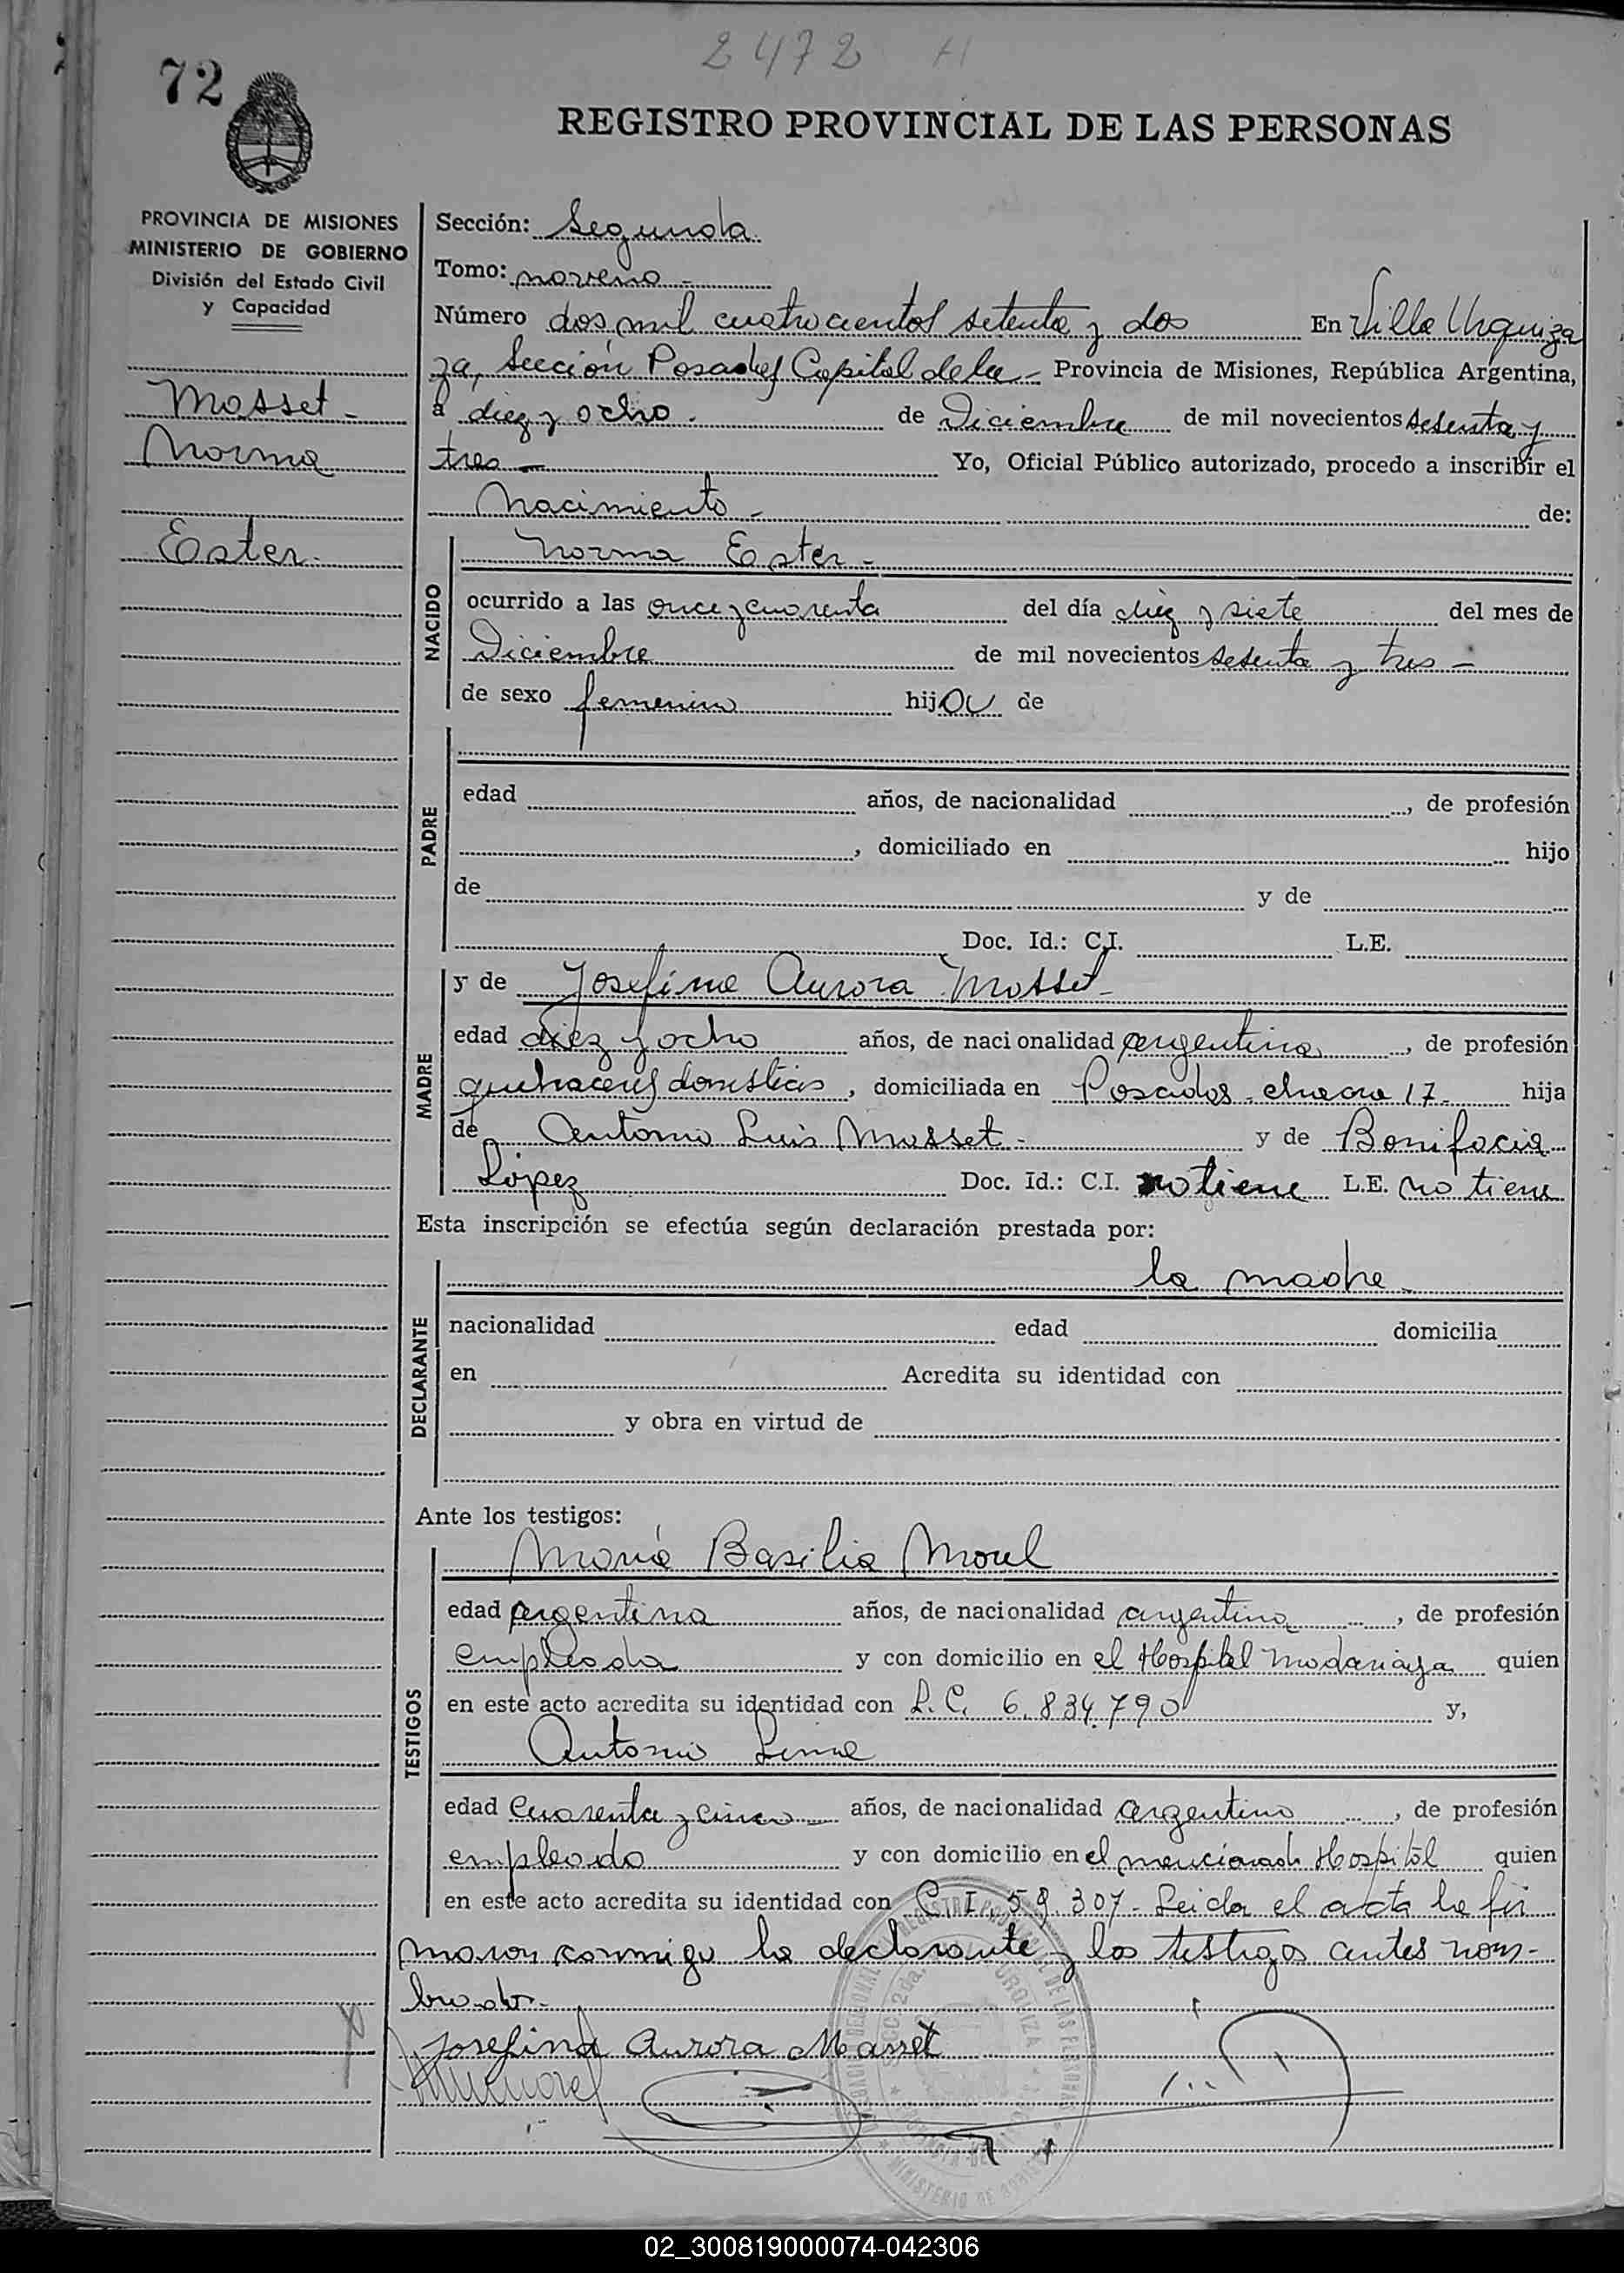 2472 H
72
REGISTRO PROVINCIAL DE LAS PERSONAS
PROVINCIA DE MISIONES
MINISTERIO DE GOBIERNO
División del Estado Civil
y Capacidad
Mosset -
Norma
Ester -
Sección: Segunda
Tomo: noveno -
Número dos mil cuatrocientos setenta y dos En Villa Urquiza
za, Sección Posadas Capital de la - Provincia de Misiones, República Argentina,
a diez y ocho - de Diciembre de mil novecientos sesenta y
tres - Yo, Oficial Público autorizado, procedo a inscribir el
Nacimiento - de:
NACIDO
Norma Ester -
ocurrido a las once y cuarenta del día diez y siete del mes de
Diciembre de mil novecientos sesenta y tres -
de sexo femenino hija de
PADRE
edad años, de nacionalidad , de profesión
, domiciliado en hijo
de y de
Doc. Id.: C.I. L.E.
MADRE
y de Josefina Aurora Mosset -
edad diez y ocho años, de nacionalidad argentina, de profesión
quehaceres domésticos, domiciliada en Posadas - chacra 17 - hija
de Antonio Luis Mosset - y de Bonifacia
López Doc. Id.: C.I. no tiene L.E. no tiene
Esta inscripción se efectúa según declaración prestada por:
DECLARANTE
la madre
nacionalidad edad domicilia
en Acredita su identidad con
y obra en virtud de
Ante los testigos:
TESTIGOS
María Basilia Morel
edad argentina años, de nacionalidad argentina, de profesión
empleada y con domicilio en el Hospital Madariaga quien
en este acto acredita su identidad con L.C. 6.834.790 y,
Antonio
edad cuarenta y cinco años, de nacionalidad argentino, de profesión
empleado y con domicilio en el mencionado Hospital quien
en este acto acredita su identidad con C.I. 59.307 - Leida el acta la fir
maron conmigo la declarante y los testigos antes nom-
brados -
Josefina Aurora Masset
02_300819000074-042306